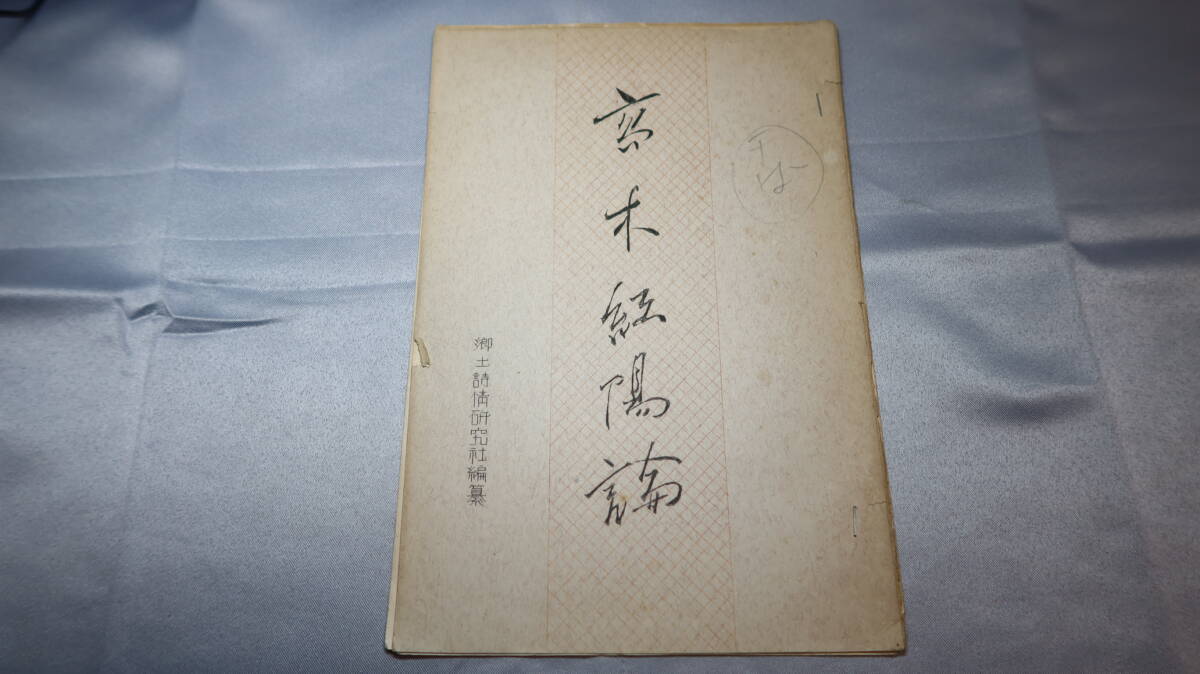 高木紅陽論
郷土詩情研究社編纂